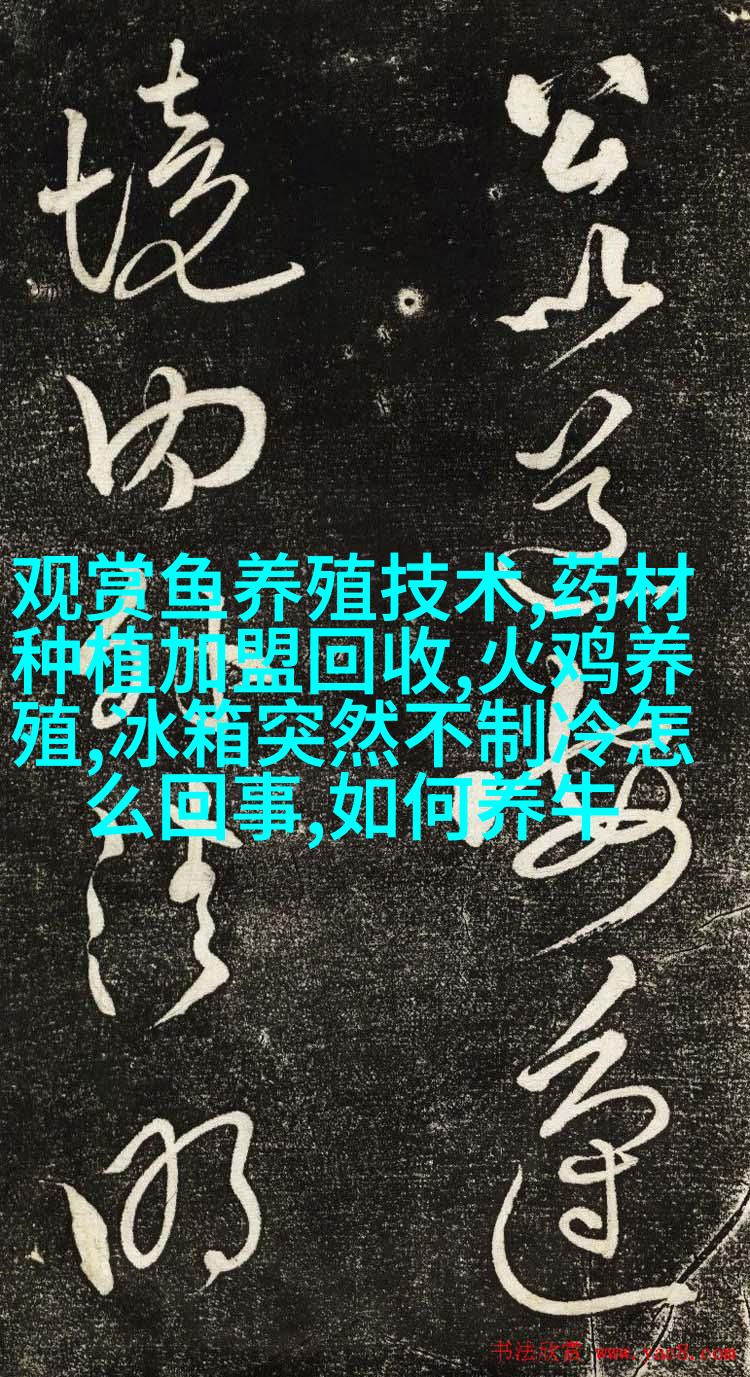 公以道
境内明
观赏鱼养殖技术,药材
种植加盟回收,火鸡养
殖,冰箱突然不制冷怎
么回事,如何养牛
书法欣赏 www.yac8.com